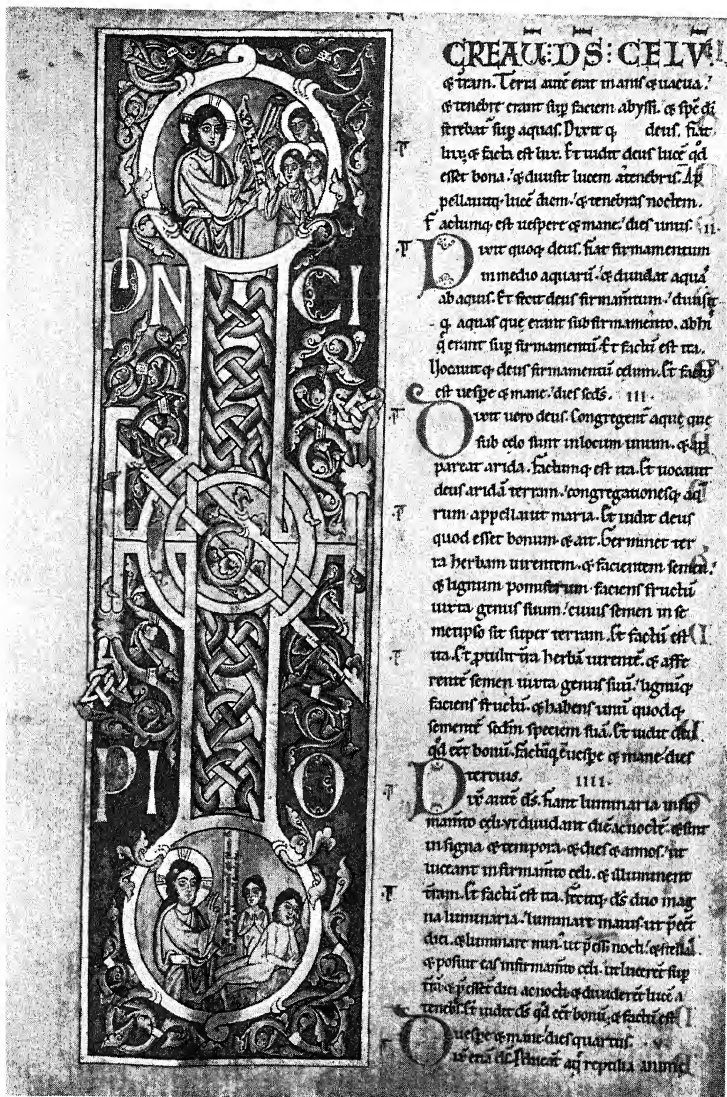 IN
PN CI
PI O
CREAU: DS: CELU:
& tram. Terra aute erat inanis & uacua.
& tenebre erant sup faciem abyssi. & sps di
ferebat sup aquas. Dixit q deus. fiat
lux. & facta est lux. Et uidit deus luce qd
esset bona. & diuisit lucem a tenebris. Ap
pellauitq luce diem. & tenebras noctem.
factumq est uespere & mane. dies unus. II.
Dixit quoq deus. fiat firmamentum
in medio aquaru. & diuidat aqua
ab aquis. Et fecit deus firmamtum. diuisit
q aquas que erant sub firmamento. ab hi
q erant sup firmamentu. Et factu est ita.
Uocauit q deus firmamentu celum. Et factu
est uespe & mane. dies scds. III.
Dixit uero deus. Congregent aque que
sub celo sunt in locum unum. & ap
pareat arida. factumq est ita. Et uocauit
deus arida terram. congregationesq aq
rum appellauit maria. Et uidit deus
quod esset bonum. & ait. Germinet ter
ra herbam uirentem. & facientem semen.
& lignum pomiferum faciens fructu
iuxta genus suum. cuius semen in se
metipso sit super terram. Et factu est
ita. Et ptulit tra herba uirente. & affe
rente semen iuxta genus suu. lignuq
faciens fructu. & habens unu quodq
semente scdm speciem sua. Et uidit ds
qd eet bonu. factuq e uespe & mane dies
tertius. IIII.
Dix aute ds. fiant luminaria in fir
mamto celi. ut diuidant die ac nocte. & sint
in signa & tempora. & dies & annos. ut
luceant in firmamto celi. & illuminent
tram. Et factu est ita. fecitq ds duo mag
na luminaria. luminare maius ut peet
diei. & luminare min ut peet nocti. & stellas
& posuit eas in firmamto celi. ut lucerent sup
tra & peent diei ac nocti. & diuiderent luce a
tenebs. Et uidit ds qd eet bonu. & factu est
uespe & mane. dies quartus.
Dix etia ds. aq reptilia anime